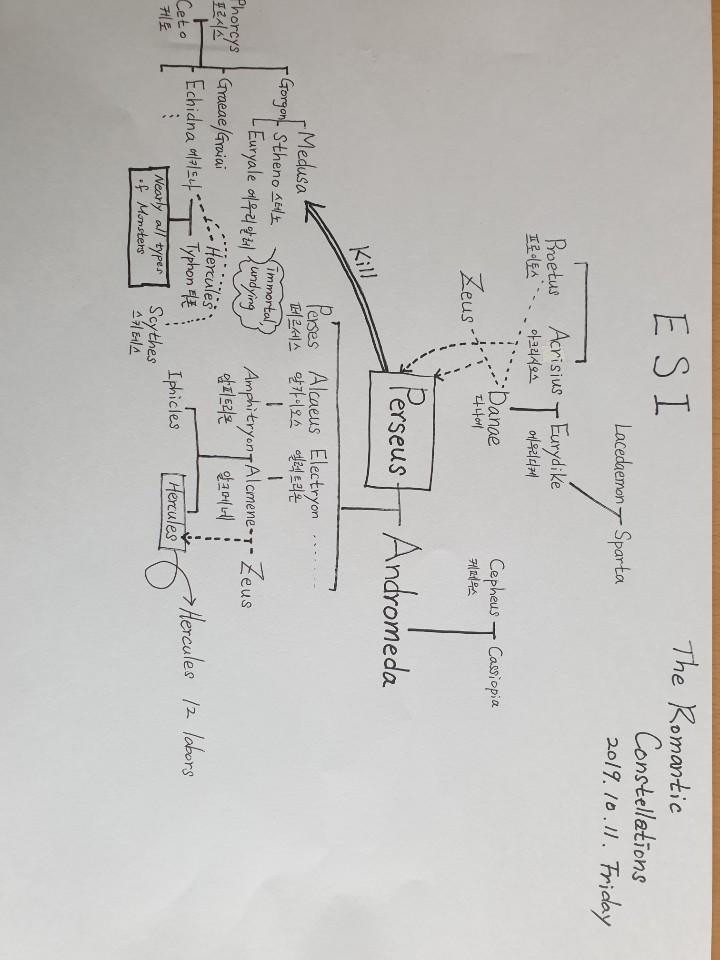 ESI
The Romantic
Constellations
2019. 10. 11. Friday
Lacedaemon Sparta
Proetus Acrisius Eurydike
프로이토스 아크리시오스 에우리디케
Zeus Danae
다나에
Cepheus Cassiopia
케페우스
Perseus Andromeda
Kill
Medusa
Gorgon Stheno 스테노
Euryale 에우리알레
immortal,
undying
Perses Alcaeus Electryon ........
페르세스 알카이오스 엘렉트리온
Phorcys
포르시스
Ceto
케토
Graeae/Graiai
Echidna 에키드나
Hercules
Typhon 티폰
Nearly all types
of Monsters
Scythes
스키테스
Amphitryon Alcmene Zeus
암피트리온 알크메네
Iphicles Hercules
Hercules 12 labors